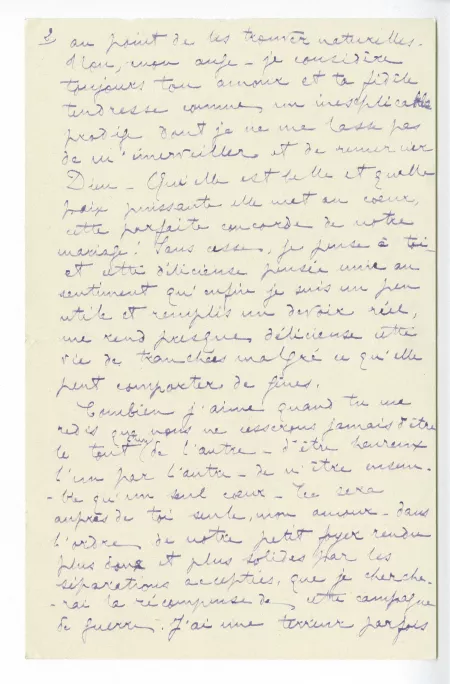 2 au point de les trouver naturelles.
Non, mon ange - je considère
toujours ton amour et ta fidèle
tendresse comme un inexplicable
prodige dont je ne me lasse pas
de m'émerveiller et de remercier
Dieu - Qu'elle est belle et quelle
paix puissante elle met au cœur,
cette parfaite concorde de notre
mariage! Sans cesse, je pense à toi -
et cette délicieuse pensée unie au
sentiment qu'enfin je suis un peu
utile et remplis un devoir réel,
me rend presque délicieuse cette
vie de tranchées malgré ce qu'elle
peut comporter de gênes.
Combien j'aime quand tu me
redis que nous ne cesserons jamais d'être
le tout l'un de l'autre - d'être heureux
l'un par l'autre - de n'être ensem-
-ble qu'un seul cœur - Ce sera
auprès de toi seule, mon amour - dans
l'ordre de notre petit foyer rendu
plus doux et plus solides par les
séparations acceptées, que je cherche-
-rai la récompense de cette campagne
de guerre. J'ai une terreur parfois